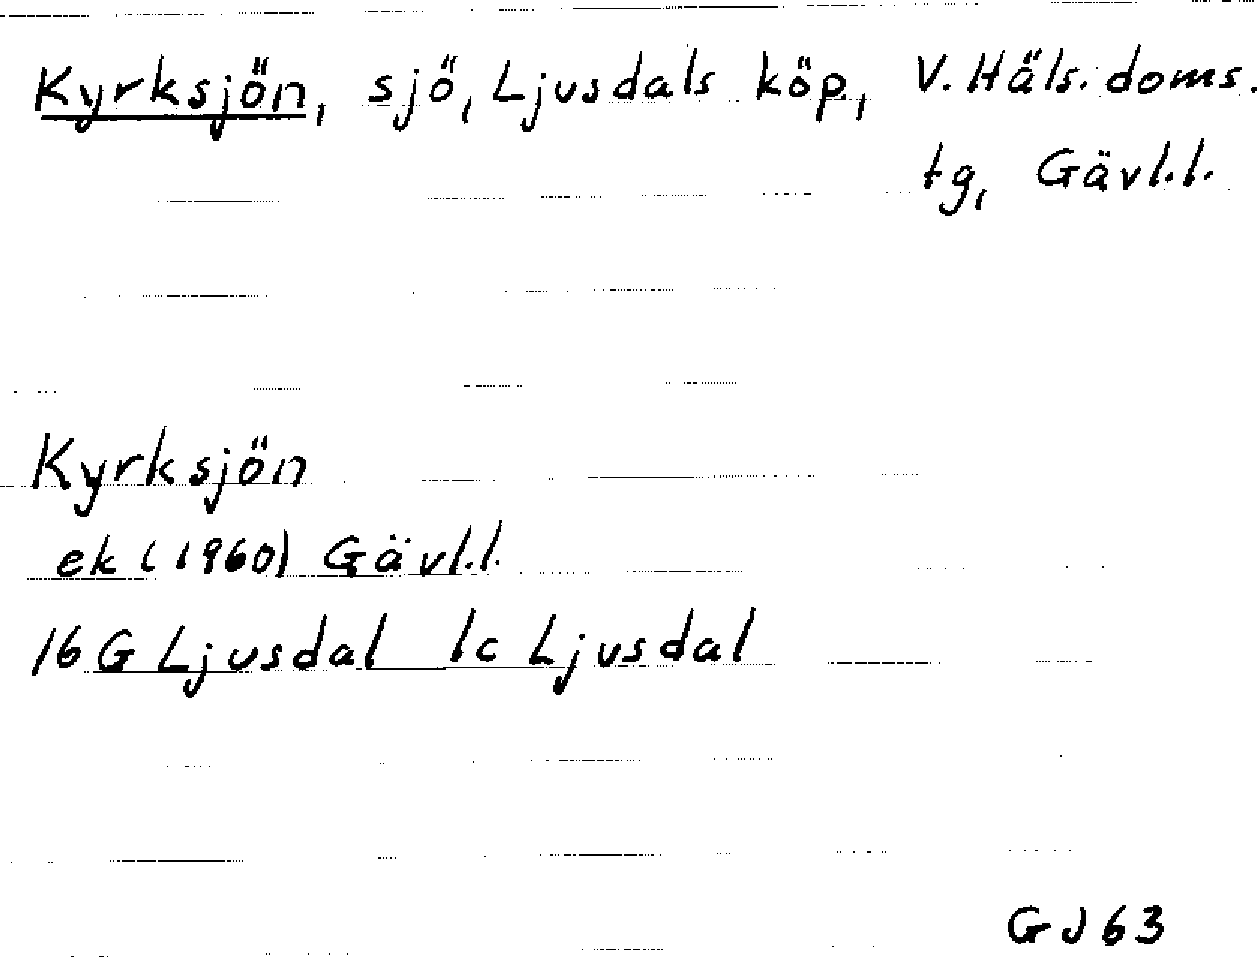 Kyrksjön, sjö, Ljusdals köp, V. Häls. doms.
tg, Gävl.l.
Kyrksjön
ek (1960) Gävl.l.
16 G Ljusdal 1c Ljusdal
GJ63